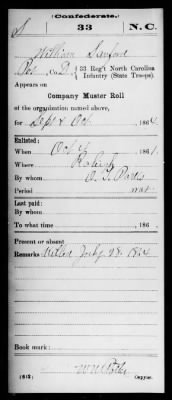 (Confederate.)
S 33 N.C.
William Sanford
Pvt, Co. D, 33 Reg't North Carolina
Infantry (State Troops).
Appears on
Company Muster Roll
of the organization named above,
for Sept & Oct, 1864
Enlisted:
When Oct 4, 1861.
Where Raleigh
By whom
Period war.
Last paid:
By whom
To what time, 186 .
Present or absent
Remarks: Killed July 28, 1864
Book mark:
(642) Copyist.